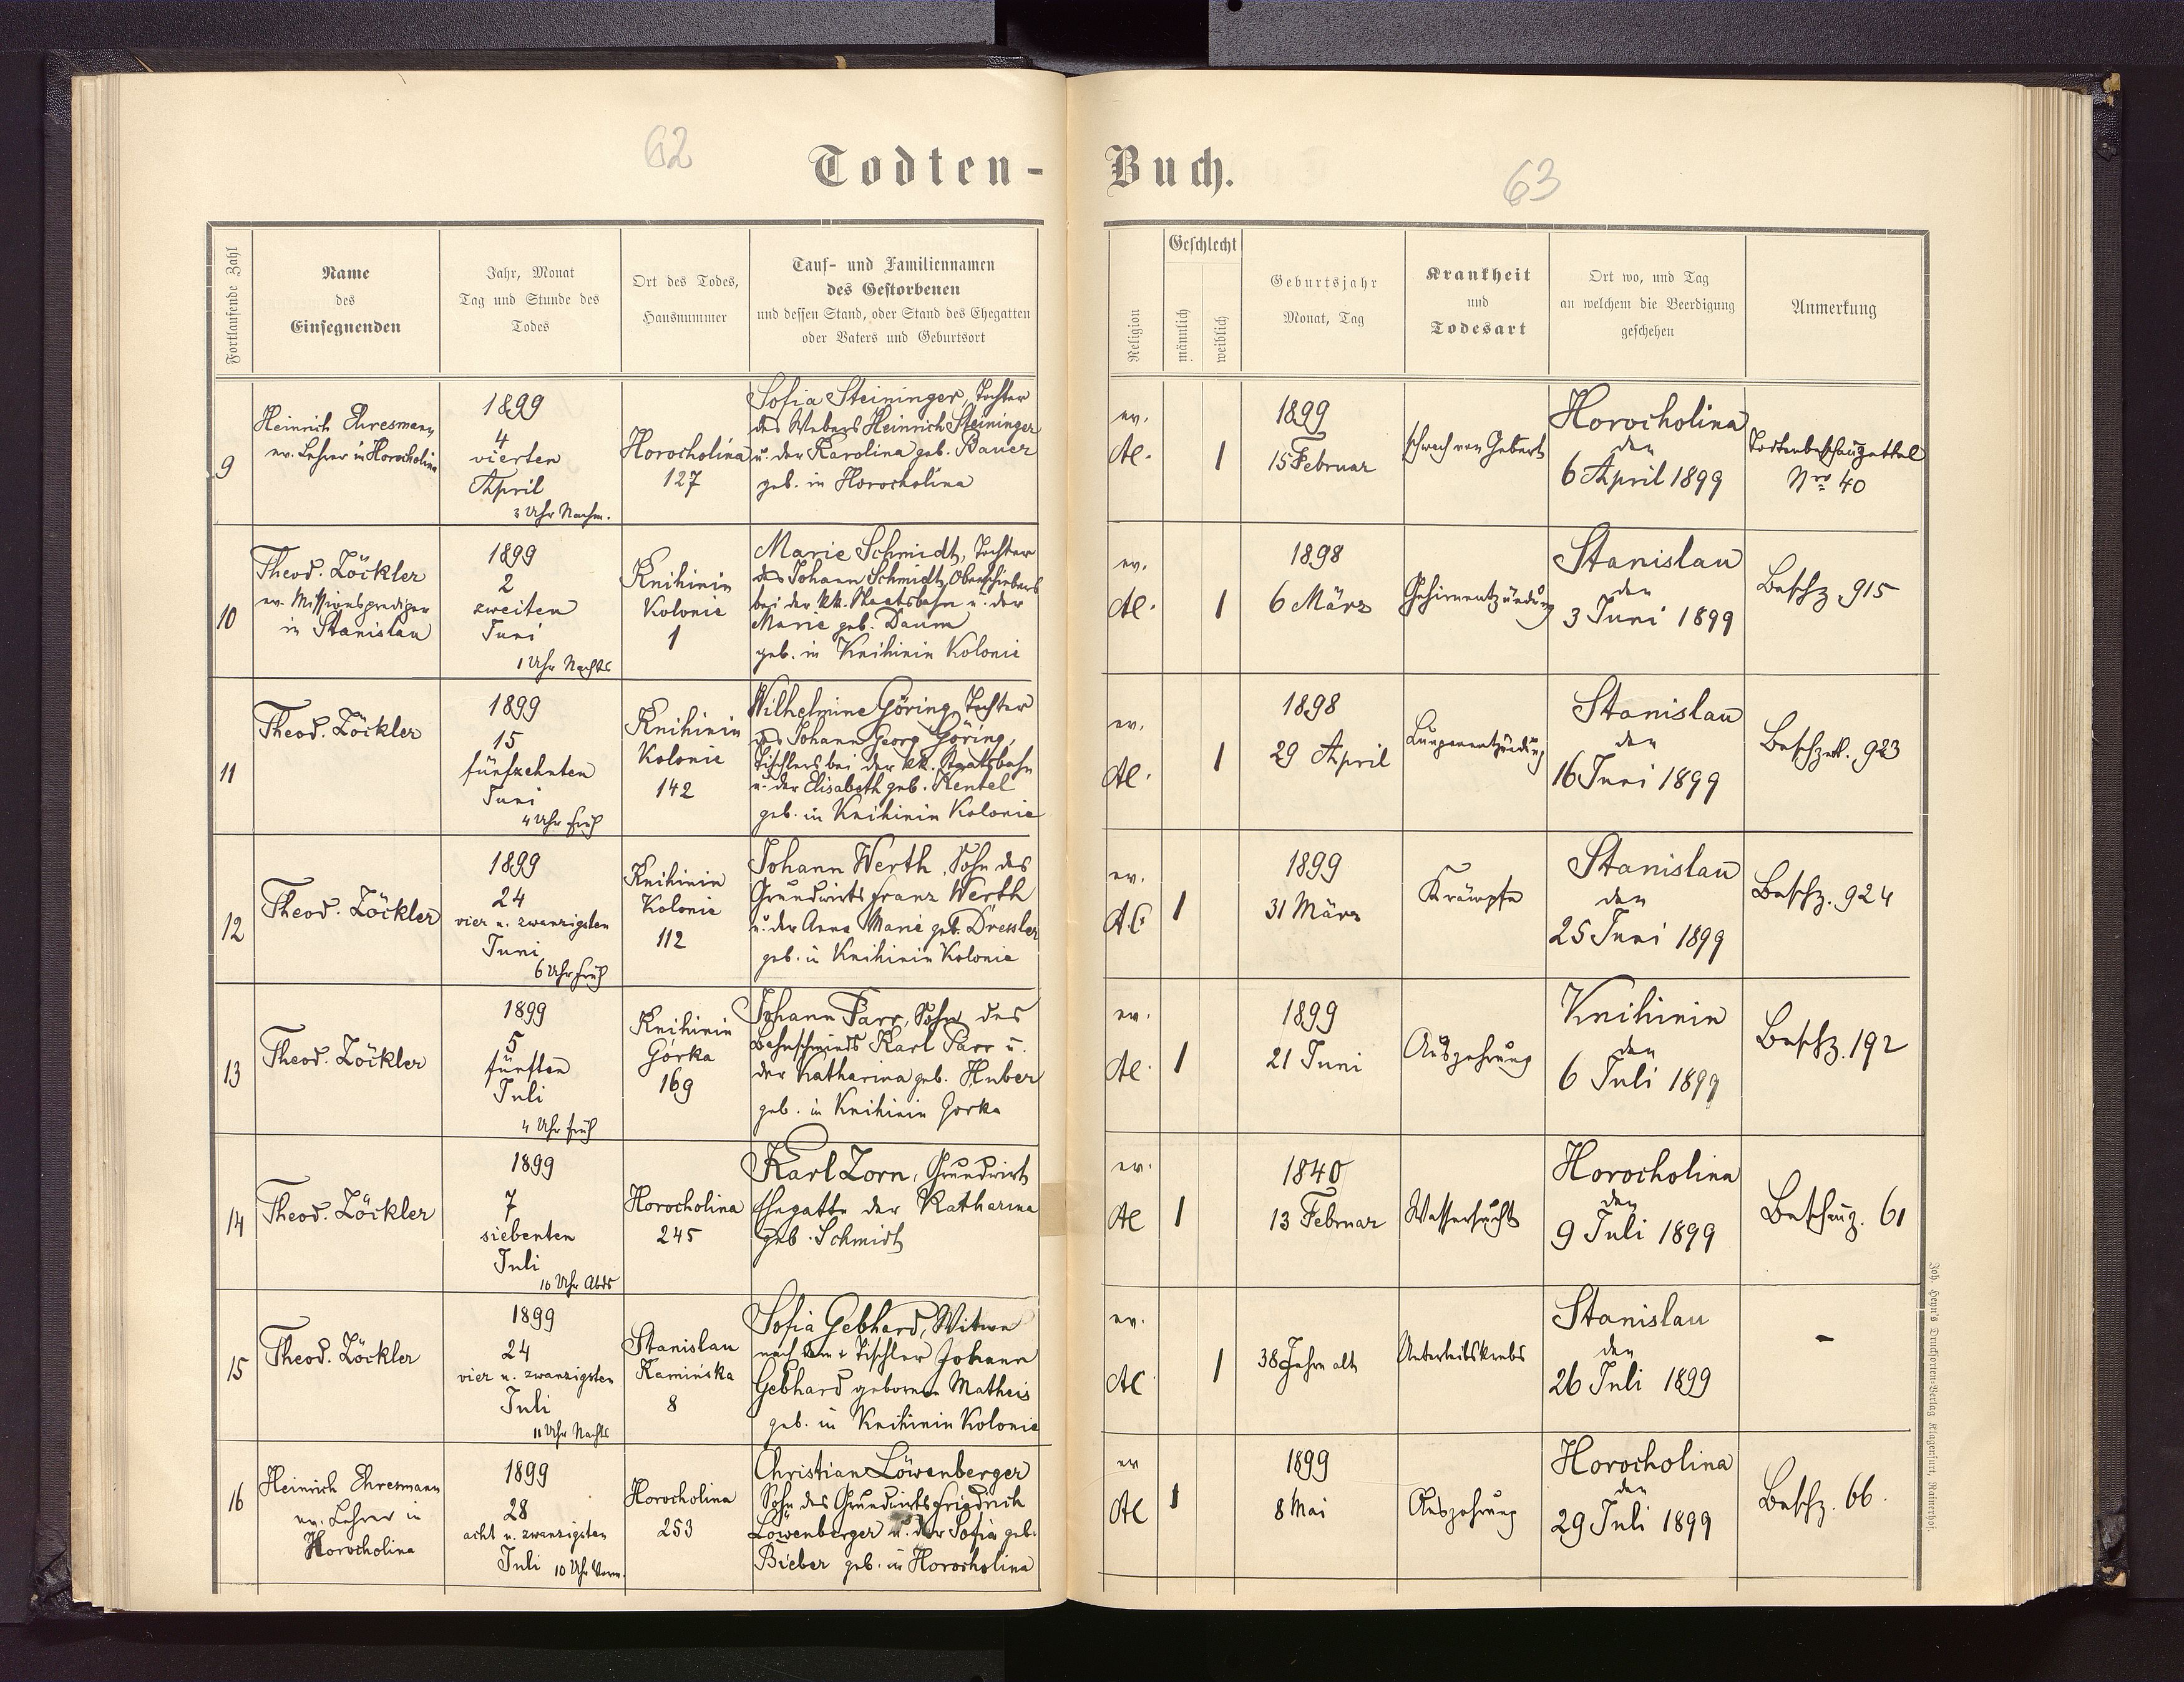 62
Todten-
Buch.
63
Fortlaufende Zahl
Name
des
Einsegnenden
Jahr, Monat
Tag und Stunde des
Todes
Ort des Todes,
Hausnummer
Tauf- und Familiennamen
des Gestorbenen
und dessen Stand, oder Stand des Ehegatten
oder Vaters und Geburtsort
Religion
Geschlecht
männlich
weiblich
Geburtsjahr
Monat, Tag
Krankheit
und
Todesart
Ort wo, und Tag
an welchem die Beerdigung
geschehen
Anmerkung
9
Heinrich Ehresmann
ev. Lehrer in Horocholina
1899
4
vierten
April
3 Uhr Nachm.
Horocholina
127
Sofia Steininger, Tochter
des Webers Heinrich Steininger
u. der Karolina geb. Bauer
geb. in Horocholina
ev.
AC.
1
1899
15 Februar
schwach von Geburt
Horocholina
den
6 April 1899
Todtenbeschauzettel
Nro 40
10
Theod. Zöckler
ev. Missionsprediger
in Stanislau
1899
2
zweiten
Juni
1 Uhr Nachts
Knihinin
Kolonie
1
Marie Schmidt, Tochter
des Johann Schmidt, Oberschiebers
bei der kk. Staatsbahn u. der
Marie geb. Daum
geb. in Knihinin Kolonie
ev.
AC.
1
1898
6 März
Gehirnentzündung
Stanislau
den
3 Juni 1899
Beschz. 915
11
Theod. Zöckler
1899
15
fünfzehnten
Juni
4 Uhr früh
Knihinin
Kolonie
142
Wilhelmine Göring, Tochter
des Johann Georg Göring,
Tischlers bei der kk. Staatsbahn
u. der Elisabeth geb. Kentel
geb. in Knihinin Kolonie
ev.
AC.
1
1898
29 April
Lungenentzündung
Stanislau
den
16 Juni 1899
Beschzett. 923
12
Theod. Zöckler
1899
24
vier u. zwanzigsten
Juni
6 Uhr früh
Knihinin
Kolonie
112
Johann Werth, Sohn des
Grundwirts Franz Werth
u. der Anna Marie geb. Dressler
geb. in Knihinin Kolonie
ev.
AC
1
1899
31 März
Krämpfe
Stanislau
den
25 Juni 1899
Beschz. 924
13
Theod. Zöckler
1899
5
fünften
Juli
4 Uhr früh
Knihinin
Górka
169
Johann Parr, Sohn des
Bahnschmieds Karl Parr u.
der Katharina geb. Huber
geb. in Knihinin Gorka
ev.
AC.
1
1899
21 Juni
Auszehrung
Knihinin
den
6 Juli 1899
Beschz. 192
14
Theod. Zöckler
1899
7
siebenten
Juli
10 Uhr Abds
Horocholina
245
Karl Zorn, Grundwirt
Ehegatte der Katharina
geb. Schmidt
ev.
AC
1
1840
13 Februar
Wassersucht
Horocholina
den
9 Juli 1899
Beschauz. 61
15
Theod. Zöckler
1899
24
vier u. zwanzigsten
Juli
11 Uhr Nachts
Stanislau
Kamińska
8
Sofia Gebhard, Witwe
nach dem + Tischler Johann
Gebhard geborene Matheis
geb. in Knihinin Kolonie
ev.
AC
1
38 Jahre alt
Unterleibskrebs
Stanislau
den
26 Juli 1899
-
16
Heinrich Ehresmann
ev. Lehrer in
Horocholina
1899
28
acht u. zwanzigsten
Juli 10 Uhr Vorm.
Horocholina
253
Christian Löwenberger
Sohn des Grundwirts Friedrich
Löwenberger u. der Sofia geb.
Bieber geb. in Horocholina
ev
AC
1
1899
8 Mai
Auszehrung
Horocholina
den
29 Juli 1899
Beschz. 66.
Joh. Heyn's Drucksorten-Verlag Klagenfurt, Rainerhof.